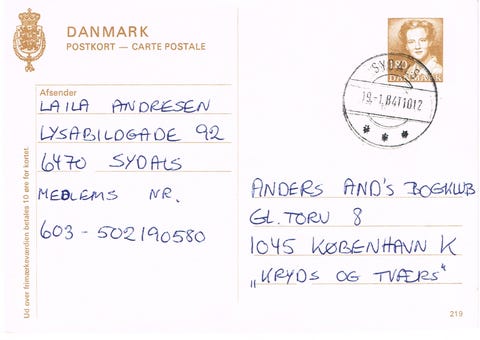 DANMARK
POSTKORT — CARTE POSTALE
180
DANMARK
SYDALS
19.-1.84 1012
Afsender
LAILA ANDRESEN
LYSABILDGADE 92
6470 SYDALS
MEDLEMS NR.
603-502190580
Ud over frimærkeværdien betales 10 øre for kortet.
ANDERS AND'S BOGKLUB
GL. TORV 8
1045 KØBENHAVN K
„KRYDS OG TVÆRS"
219